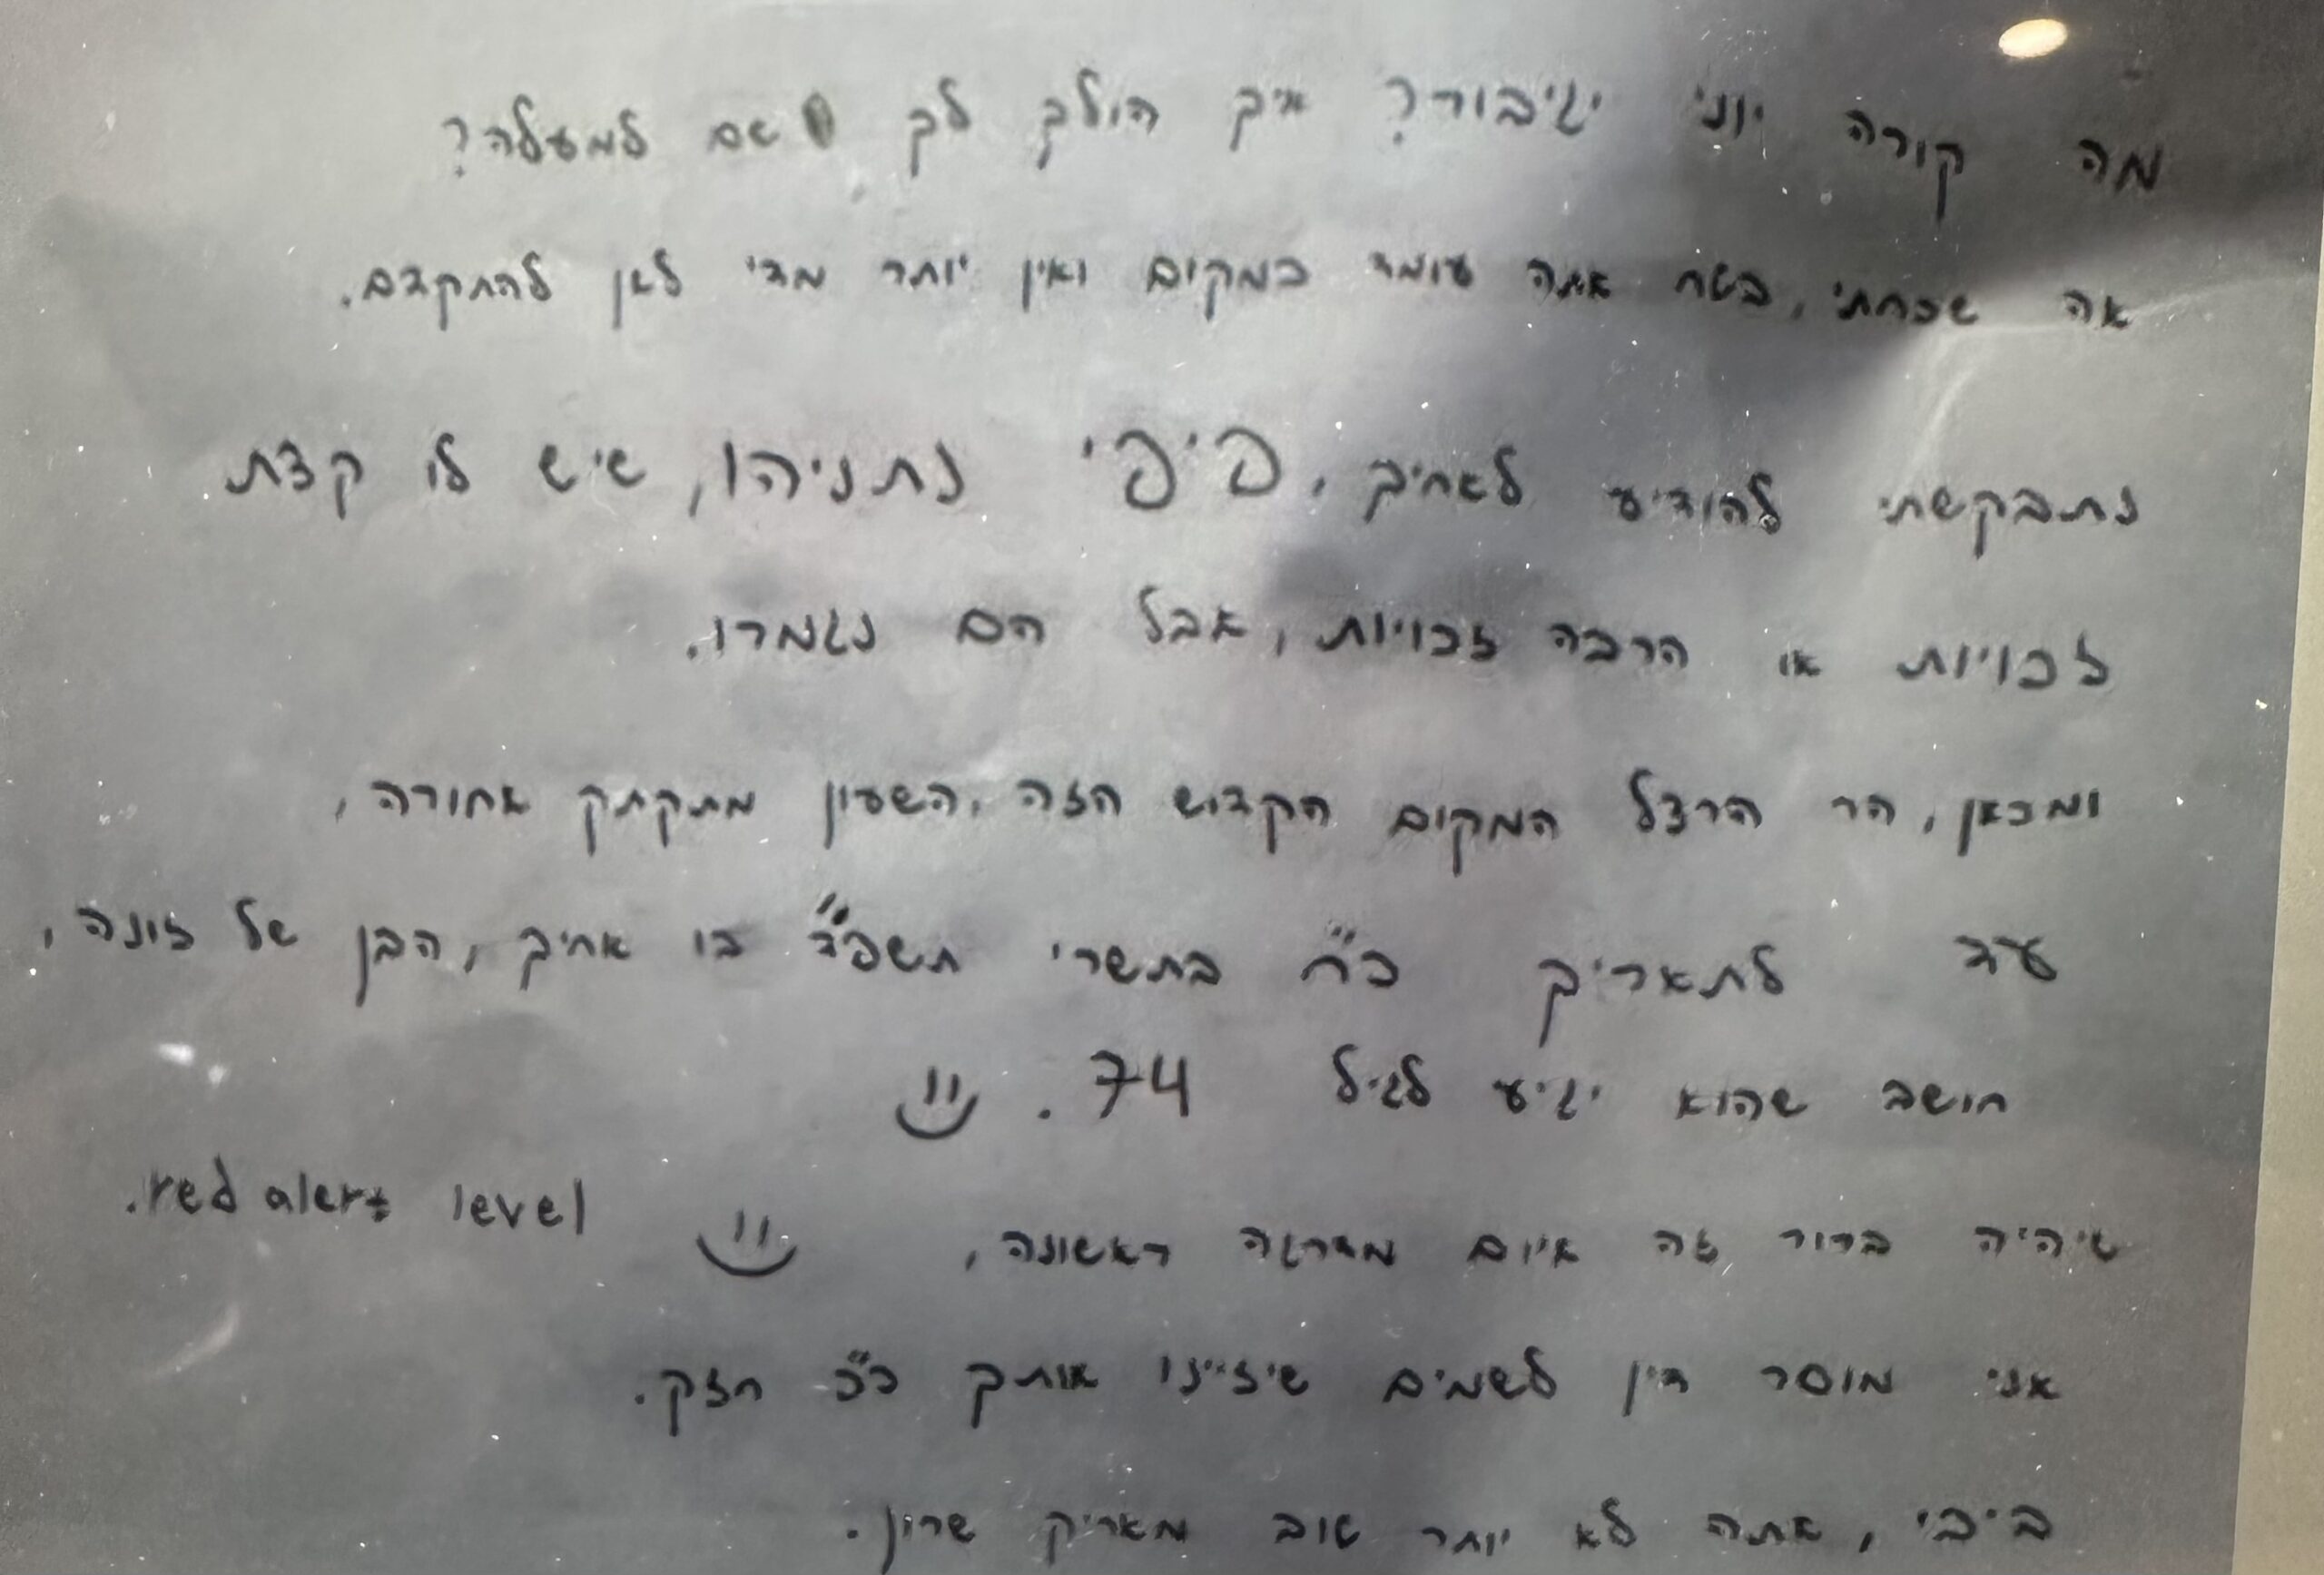 מה קורה יוני יגיבור? איך הולך לך שם למעלה?
אה שכחתי, בטח אתה עומד במקום ואין יותר מדי לאן להתקדם.
נתבקשתי להודיע לאחיך, פיפי נתניהו, שיש לו קצת
זכויות או הרבה זכויות, אבל הם נגמרו.
ומכאן, הר הרצל המקום הקדוש הזה, השעון מתקתק אחורה,
עד לתאריך כ"ח בתשרי תשפ"ד בו אחיך, הבן של זונה,
חושב שהוא יגיע לגיל 74.
שיהיה ברור זה איום מדרגה ראשונה, red alert level.
אני מוסר דין לשמים שיזיינו אותך כ"כ חזק.
ביבי, אתה לא יותר טוב מאריק שרון.